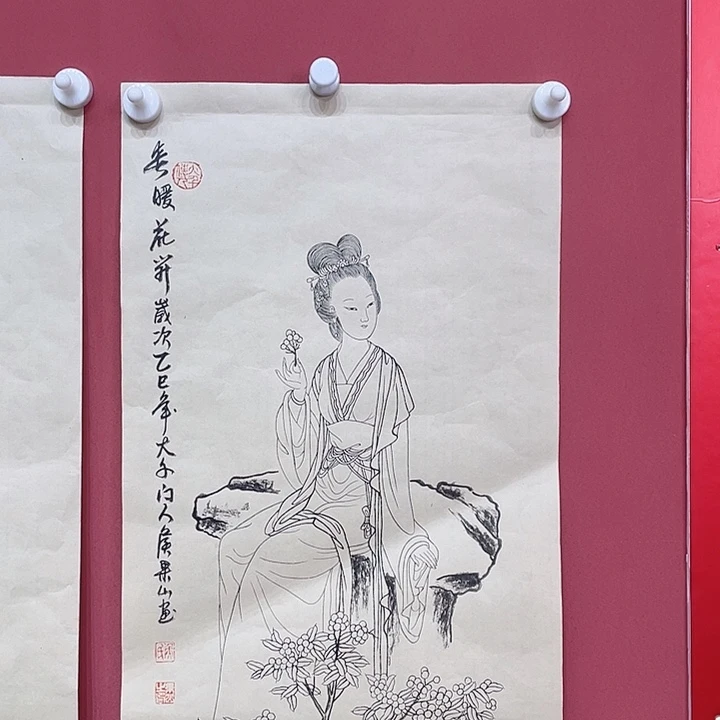 春暖花开歲次乙巳年大千门人侯果山画